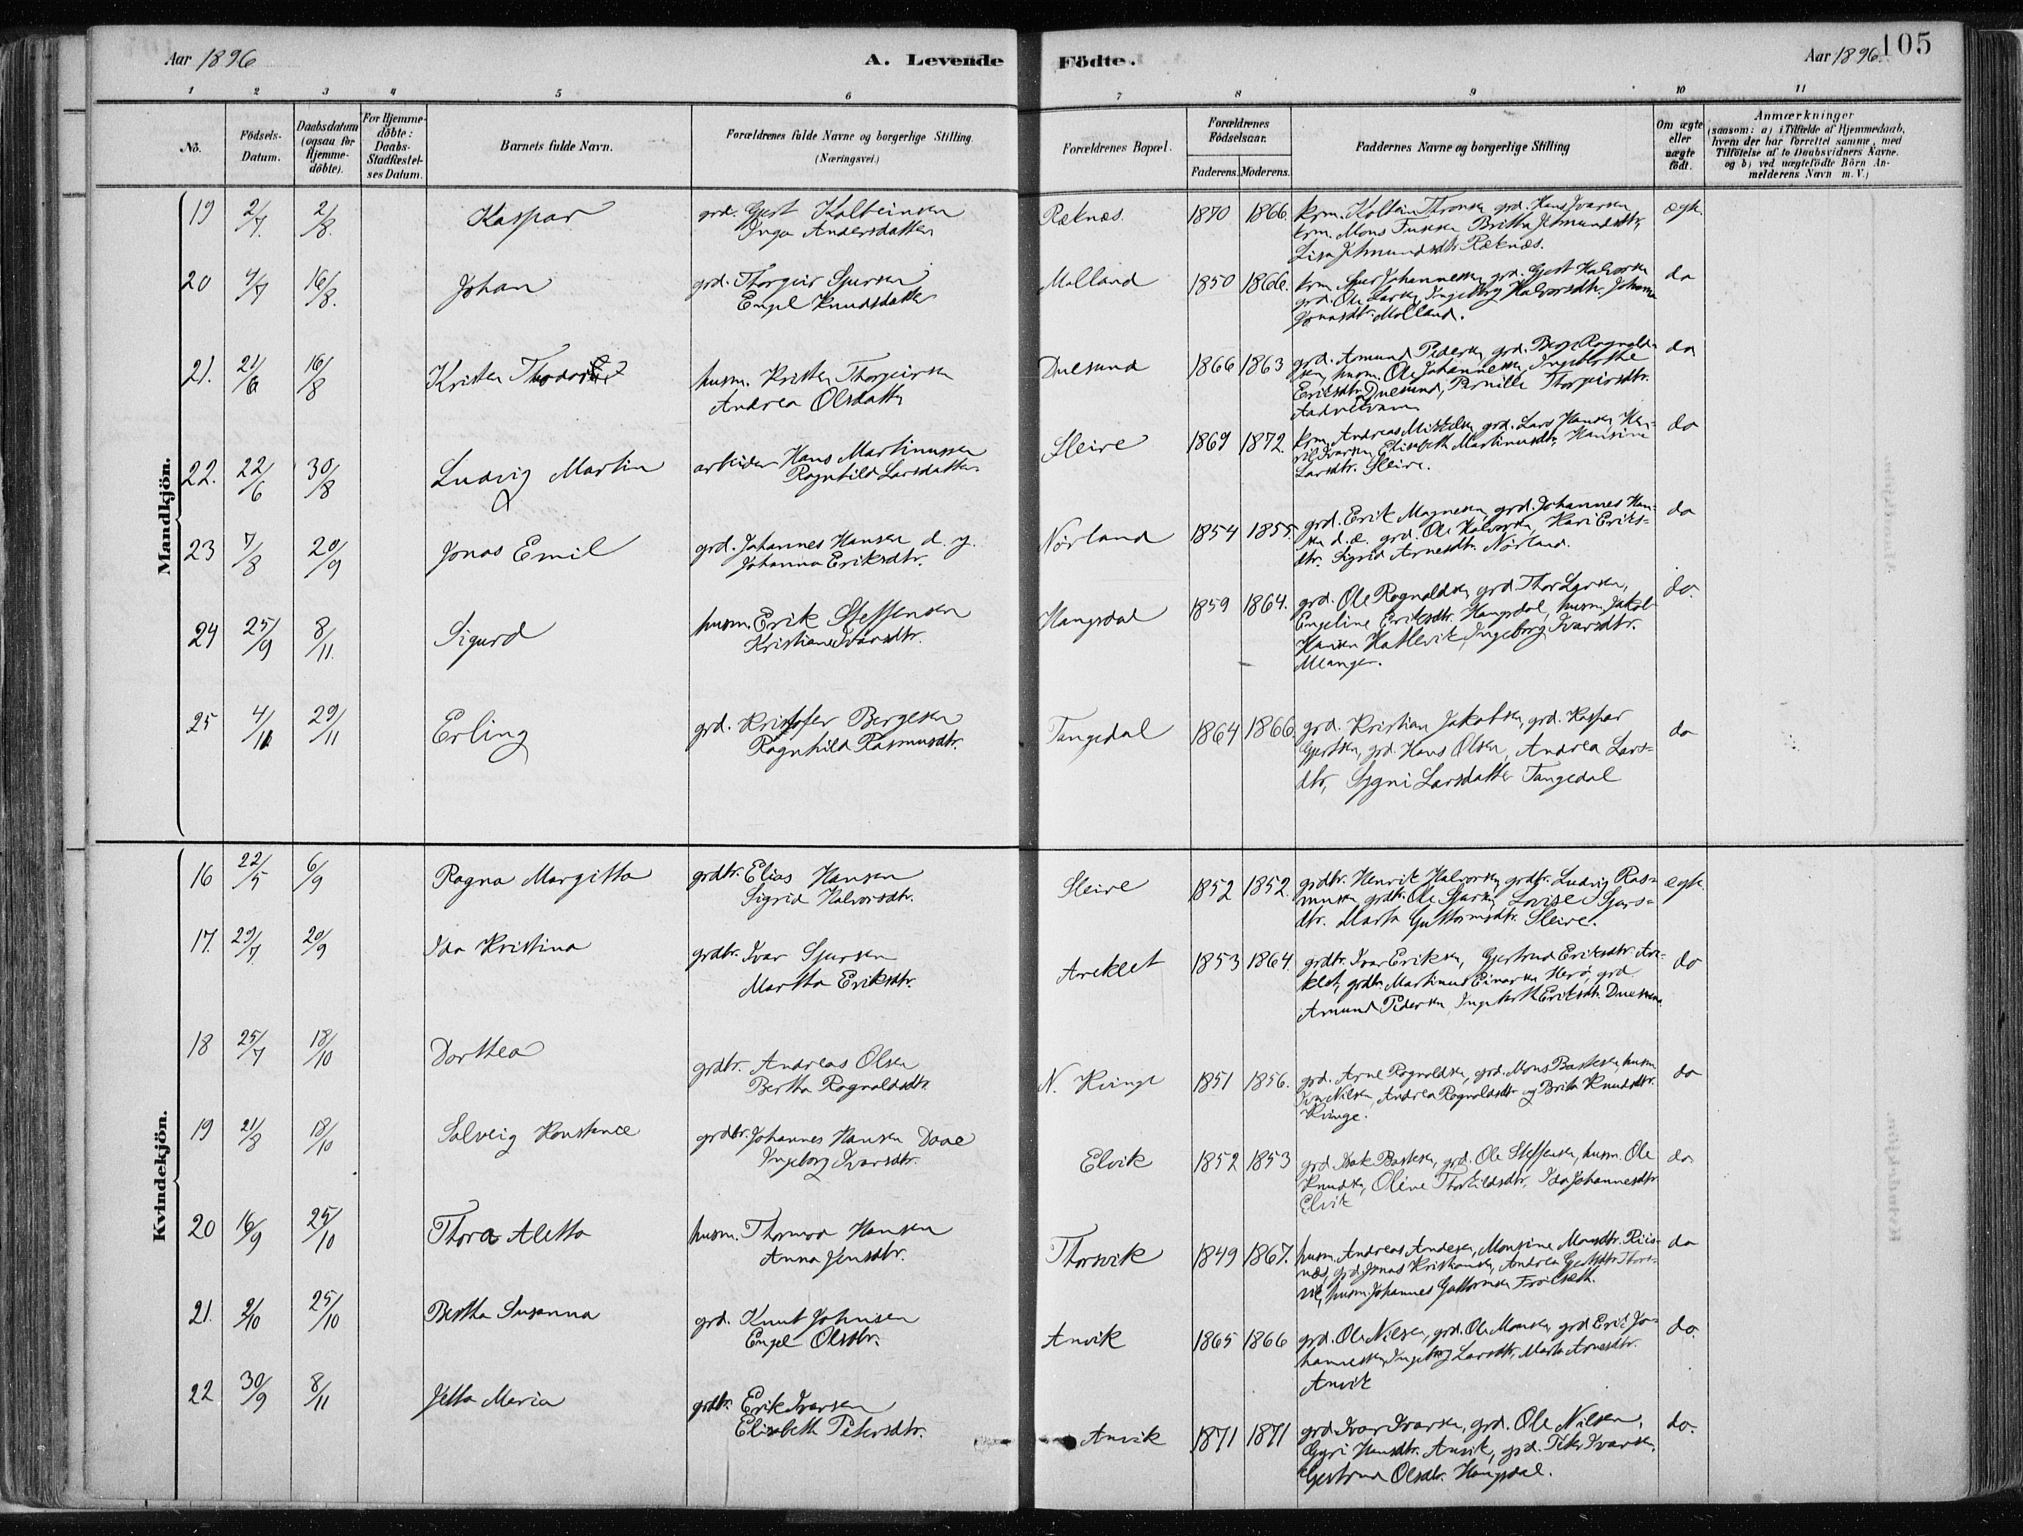 Aar 1896
A. Levende
Födte.
Aar 1896.
105
1 2 3 4 5 6 7 8 9 10 11
Nö.
Födsels-Datum.
Daabsdatum (ogsaa for Hjemme-döbte).
For Hjemme-döbte: Daabs-Stadfæstel-ses Datum.
Barnets fulde Navn.
Forældrenes fulde Navne og borgerlige Stilling (Næringsvei.)
Forældrenes Bopæl.
Forældrenes Födselsaar.
Faderens. Moderens.
Faddernes Navne og borgerlige Stilling
Om ægte eller uægte födt.
Anmærkninger
(saasom: a) i Tilfælde af Hjemmedaab, hvem der har forrettet samme, med Tilföielse af to Daabsvidners Navne. og b) ved uægtefödte Börn An-melderens Navn m. V.)
Mandkjön.
19 2/7. 2/8. Kaspar grd. Gjert Kolbeinsen
Inga Andersdatter
Reknæs. 1870 1866. krm. Kolbein Thronsen grd. Hans Ivarsen
krm. Mons Britha Amundsdtr,
Lisa Amundsdtr Reknæs.
ægte.
20 4/7 16/8. Johan grd. Thorgeir Sjursen
Engel Knudsdatter
Molland 1850 1866. krm Sjur Johannessen grd. Gjert Halvorsen
grd. Ole Larsen, Ingeborg Halvorsdtr. Johanna
Jonasdtr. Molland.
do
21. 21/6 16/8 Kristen husm. Kristen Thorgeirsen
Andrea Olsdatter
Duesund 1866 1863 grd. Amund Pedersen, grd. Berge Rognald-
sen, husm. Ole Johannessen, Ingeborg
Eriksdtr Duesund, Pernille Thorgeirsdtr.
do
22. 22/6 30/8 Ludvig Martin arbeider Hans Martinussen
Ragnhild Larsdatter
Sleire 1869 1872. krm. Andreas Mikkelsen grd. Lars Hansen, Hen-
rik Ivarsen Elisabeth Martinusdtr. Hansine
Larsdtr. Sleire.
do
23 7/8 20/9 Jonas Emil grd. Johannes Hansen d. y.
Johanna Eriksdtr.
Nörland 1854 1855. grd. Erik Magnesen, grd. Johannes Han-
sen d. æ. grd. Ole Halvorsen, Kari Eriks-
dtr. Sigrid Arnesdtr. Nörland.
do
24 25/9 8/11. Sigurd husm. Erik Steffensen
Kristiane Ivarsdtr.
Haugsdal 1859 1864. grd. Ole Rognaldsen, grd. Thor Larsen,
Engeline Eriksdtr. Haugsdal, husm. Jakob
Hansen Hatlevik, Ingeborg Ivarsdtr.
do.
25 4/11 29/11 Erling grd. Kristofer Bergesen
Ragnhild Rasmusdtr.
Tangedal 1864 1866. grd. Kristian Jakobsen, grd. Kaspar
Gjertsen, grd. Hans Olsen, Andrea Lars-
dtr, Sygni Larsdatter Tangedal
do
Kvindekjön.
16 22/5 6/9 Ragna Margitta grdbr. Elias Hansen
Sigrid Halvorsdtr.
Sleire 1852 1852. grdbr. Henrik Halvorsen, grdbr. Ludvig Ras-
mussen grdbr. Ole Sjursen, Lovise Sjurs-
dtr. Marta Guttormsdtr. Sleire.
ægte.
17. 29/7 20/9 Ida Kristina grdbr. Ivar Sjursen
Martha Eriksdtr.
Areklet 1853 1864. grdbr. Ivar Eriksen, Gjertrud Eriksdtr. Are-
klet, grdbr. Martinus Einarsen Herö, grd
Amund Pedersen, Ingeborg Eriksdtr Duesund.
do
18 25/7 18/10 Dorthea grdbr. Andreas Olsen
Bertha Rognaldsdtr
N. Kvinge 1851 1856. grd. Arne Rognaldsen, grd. Mons Bastesen, husm
Nilsen, Andrea Rognaldsdtr og Brita Knudsdtr.
Kvinge.
do
19 21/8 18/10 Solveig Konstance grdbr. Johannes Hansen Daae
Ingeborg Ivarsdtr.
Elvik 1852 1853 grd. Isak Bastesen, grd. Ole Steffensen, husm. Ole
Knudsen, Oline Thorkildsdtr. Ida Johannesdtr
Elvik
do
20 16/9 25/10 Thora Aletta husm. Thormod Hansen
Anna Jensdtr.
Thorsvik 1849 1867. husm. Andreas Andersen, Monsine Monsdtr. Riis-
næs, grd. Jonas Kristiansen, Andrea Gjertsdtr Thors-
vik, husm. Johannes Guttormsen Fröiseth.
do
21. 2/10 25/10 Bertha Susanna grd. Knut Johnsen
Engel Olsdtr.
Anvik 1865 1866 grd. Ole Nilsen, grd. Ole Monsen, grd Erik Jo-
hannessen, Ingeborg Larsdtr, Marta Arnesdtr.
Anvik
do.
22 30/9 8/11 Jetta Maria grdbr. Erik Ivarsen
Elisabeth Petersdtr.
Anvik 1871 1871 grd Ivar Ivarsen, grd. Ole Nilsen,
Gyri Hansdtr. Anvik, grd. Peter Ivarsen,
Gjertrud Olsdtr. Haugsdal.
do.